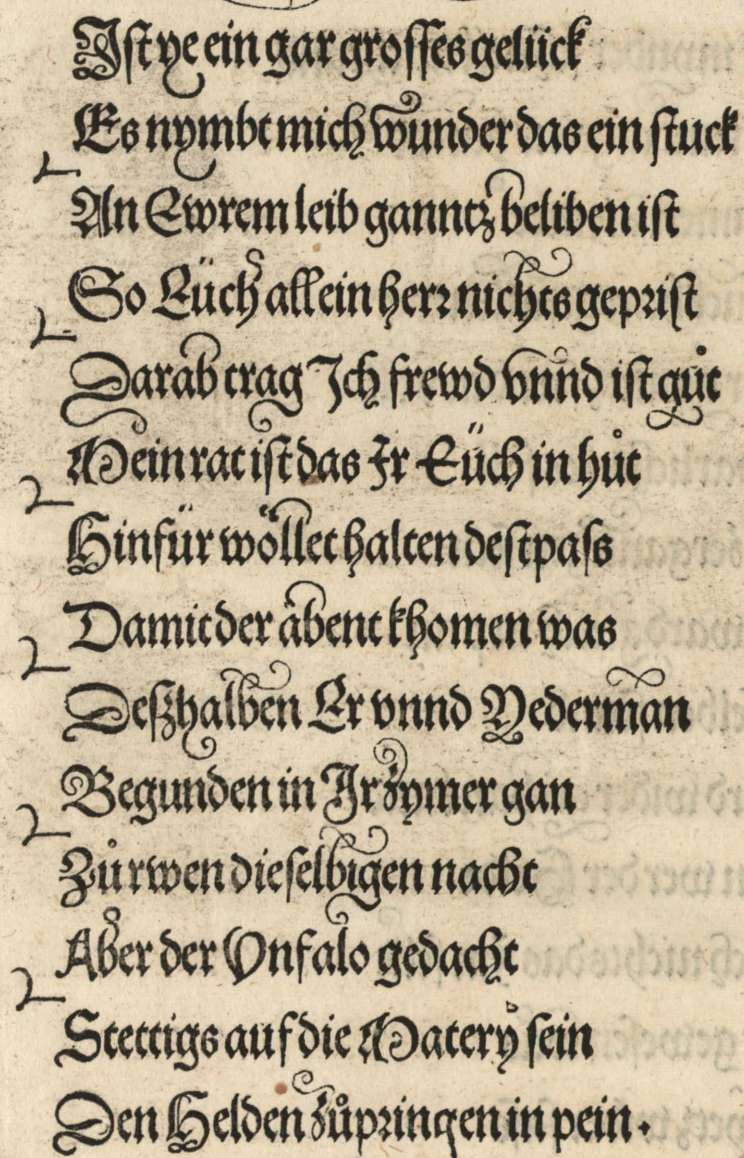 Ist ye ein gar grosses gelück
Es nymbt mich wunder das ein stuck
An Ewrem leib ganntz beliben ist
So Eüch allein herr nichts geprist
Darab trag Ich frewd vnnd ist gůt
Mein rat ist das Ir Eüch in hůt
Hinfür wöllet halten destpass
Damit der abent khomen was
Deßhalben Er vnnd Yederman
Begunden in Ir zymer gan
Zů rwen dieselbigen nacht
Aber der Vnfalo gedacht
Stettigs auf die Matery sein
Den Helden zůpringen in pein.